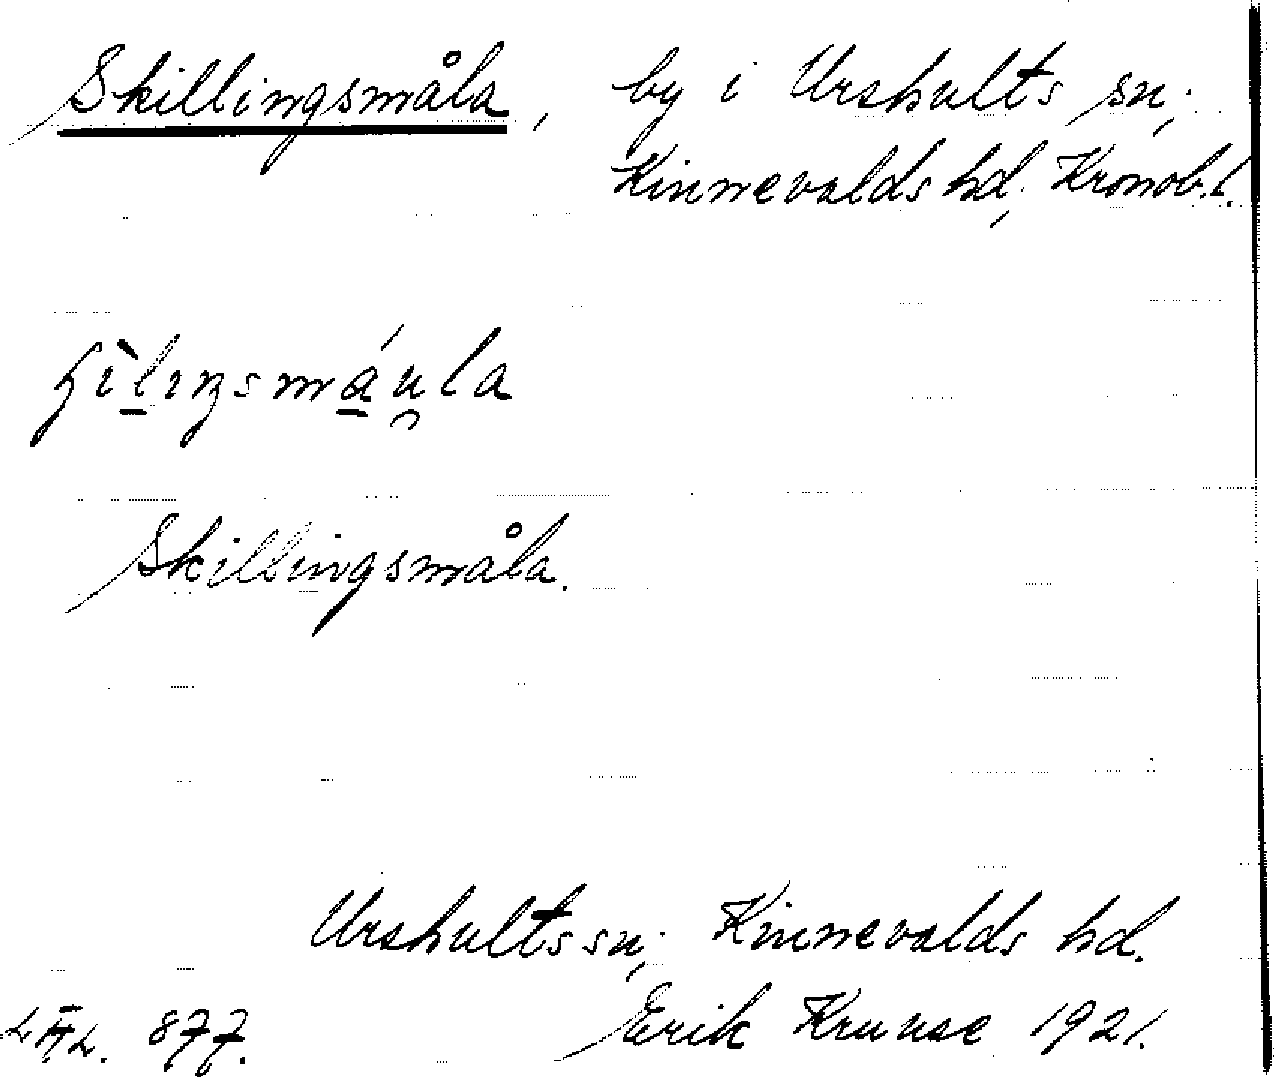 Skillingsmåla, by i Urshults sn;
Kinnevalds hd, Kronob. l.
Skillingsmåla.
Urshults sn; Kinnevalds hd.
877. Erik Kruuse 1921.